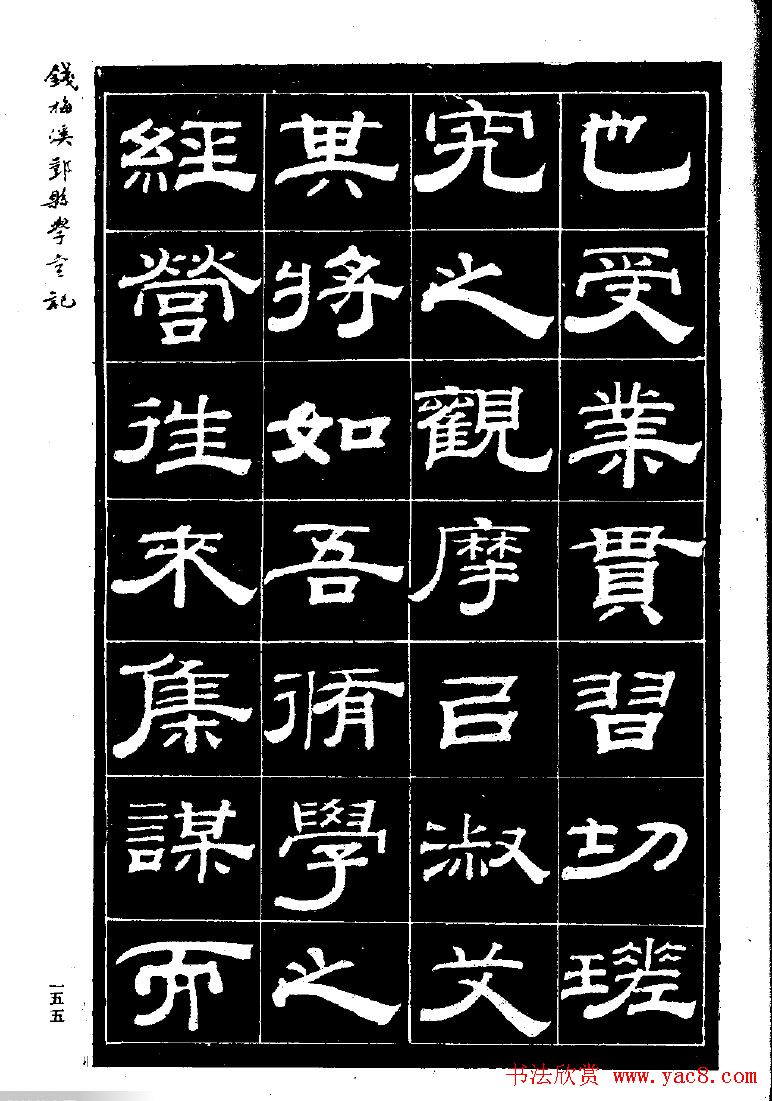 也受業貫習切瑳
究之觀摩㠯淑艾
其將如吾脩學之
經營徃來集謀而
錢梅溪縣學記
一五五
书法欣赏 www.yac8.com